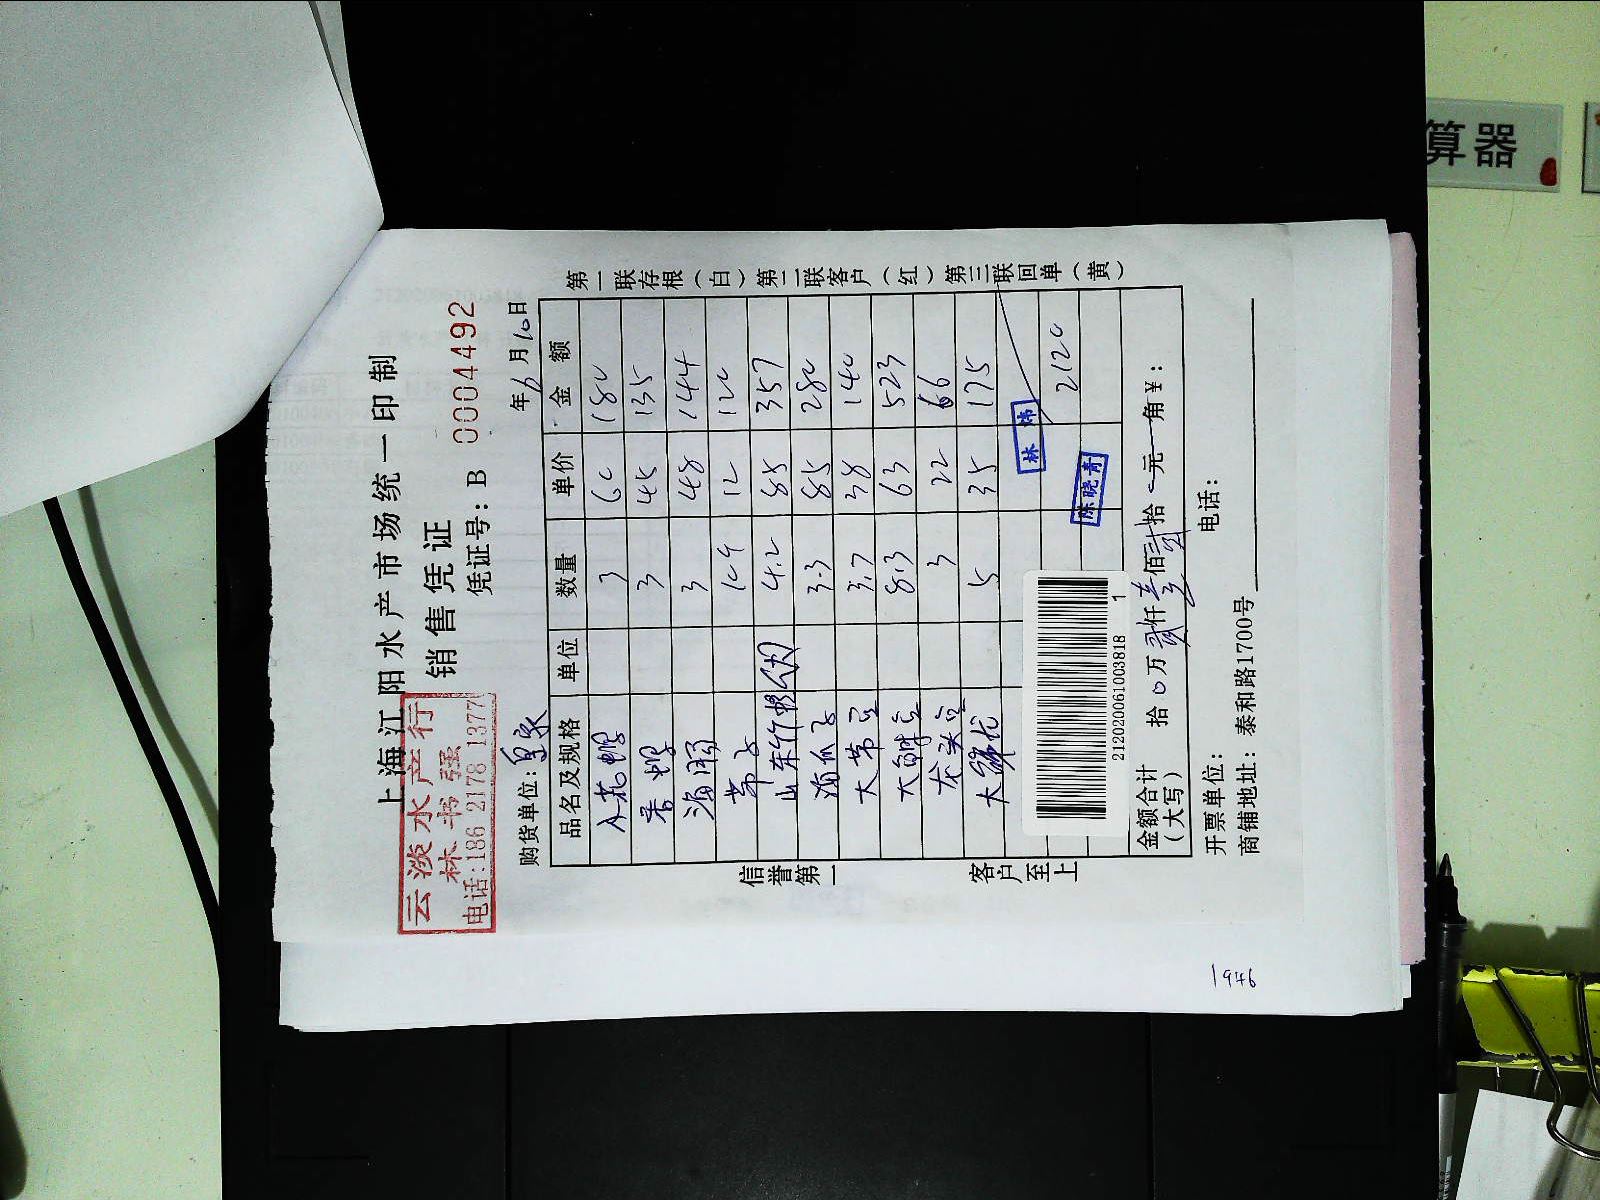 上海江阳水产市场统一印制
销售凭证
凭证号: B 0004492
云淡水产行
林书强
电话:186 2178 1377
购货单位:
年 6 月 10 日
品名及规格 单位 数量 单价 金额
花蛤 3 60 180
香螺 3 45 135
海 3 48 144
节子 10.4 12 120
山东竹蛏(大) 4.2 85 357
海瓜子 3.3 85 280
大节 3.7 38 140
大鲜 8.3 63 523
龙头 3 22 66
大 5 35 175
林 炜
2120
陈晓青
2120200610038181
金额合计(大写) 拾 0 万 贰 仟 壹 佰 贰 拾 元 角 ¥:
开票单位: 电话:
商铺地址: 泰和路1700号
第一联存根(白) 第二联客户(红) 第三联回单(黄)
信誉第一
客户至上
算器